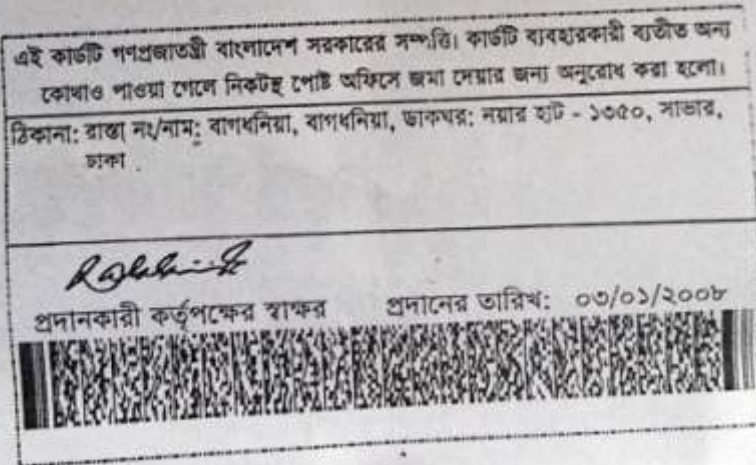 এই কার্ডটি গণপ্রজাতন্ত্রী বাংলাদেশ সরকারের সম্পত্তি। কার্ডটি ব্যবহারকারী ব্যতীত অন্য
কোথাও পাওয়া গেলে নিকটস্থ পোষ্ট অফিসে জমা দেয়ার জন্য অনুরোধ করা হলো।
ঠিকানা: রাস্তা নং/নাম: বাগধনিয়া, বাগধনিয়া, ডাকঘর: নয়ার হাট - ১৩৫০, সাভার,
ঢাকা
প্রদানকারী কর্তৃপক্ষের স্বাক্ষর প্রদানের তারিখ: ০৩/০১/২০০৮